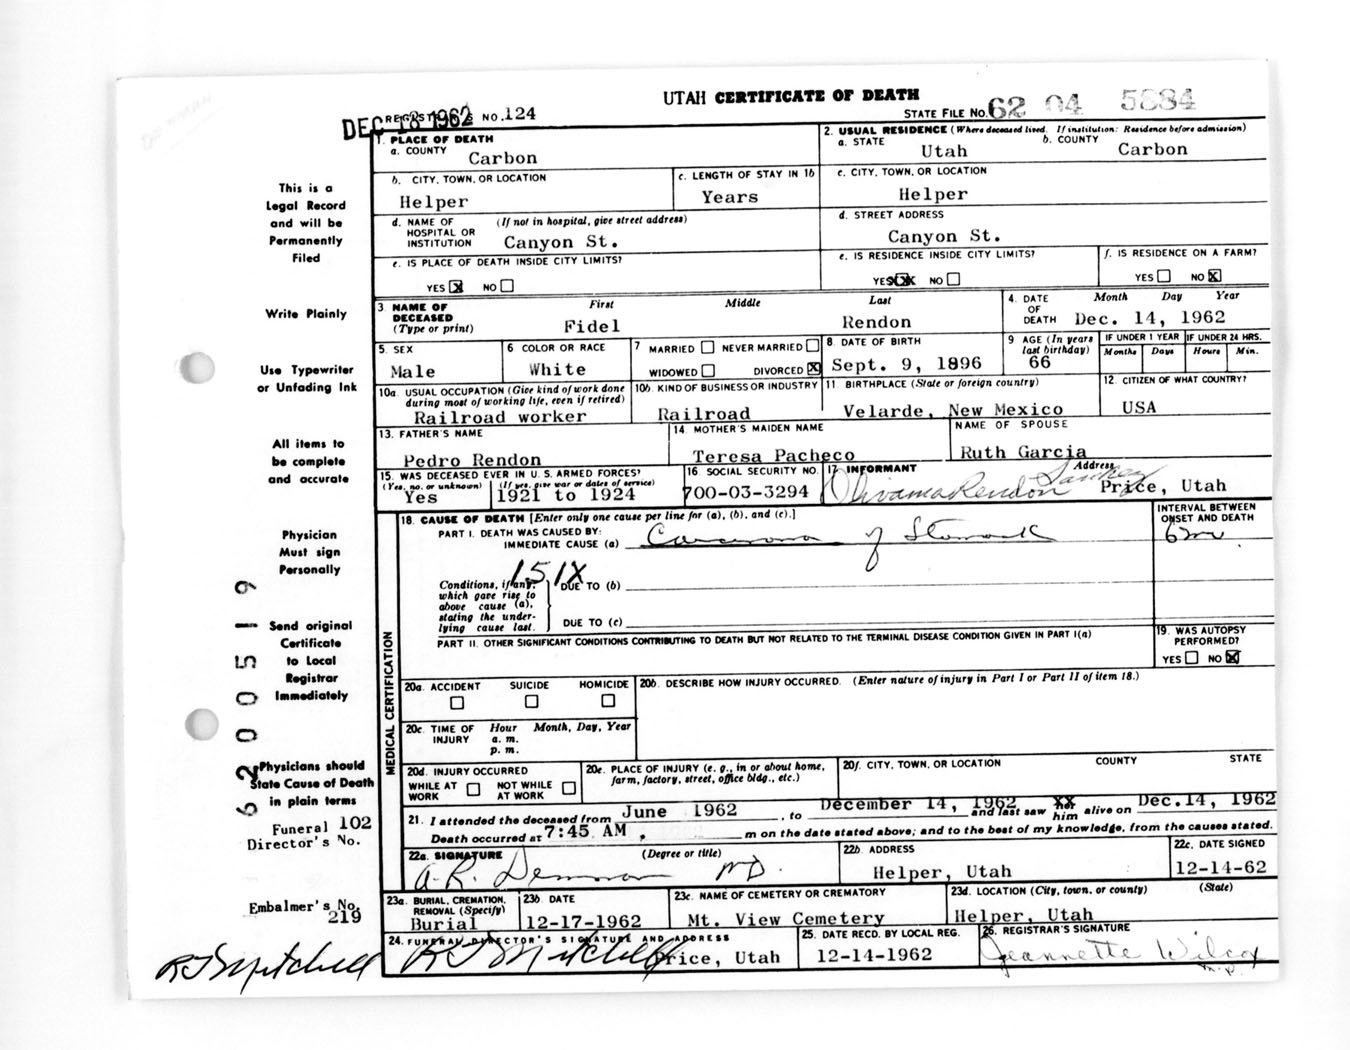 UTAH CERTIFICATE OF DEATH
DEC 18 1962
REGISTRAR'S NO. 124
STATE FILE NO. 62 04 5884
1. PLACE OF DEATH
a. COUNTY
Carbon
2. USUAL RESIDENCE (Where deceased lived. If institution: Residence before admission)
a. STATE Utah b. COUNTY Carbon
b. CITY, TOWN, OR LOCATION
Helper
c. LENGTH OF STAY IN 1b
Years
c. CITY, TOWN, OR LOCATION
Helper
d. NAME OF HOSPITAL OR INSTITUTION (If not in hospital, give street address)
Canyon St.
d. STREET ADDRESS
Canyon St.
e. IS PLACE OF DEATH INSIDE CITY LIMITS?
YES X NO
e. IS RESIDENCE INSIDE CITY LIMITS?
YES X NO
f. IS RESIDENCE ON A FARM?
YES NO X
3. NAME OF DECEASED (Type or print)
First Middle Last
Fidel Rendon
4. DATE OF DEATH Month Day Year
Dec. 14, 1962
5. SEX
Male
6 COLOR OR RACE
White
7 MARRIED NEVER MARRIED
WIDOWED DIVORCED X
8. DATE OF BIRTH
Sept. 9, 1896
9 AGE (In years last birthday)
66
IF UNDER 1 YEAR IF UNDER 24 HRS.
Months Days Hours Min.
10a. USUAL OCCUPATION (Give kind of work done during most of working life, even if retired)
Railroad worker
10b. KIND OF BUSINESS OR INDUSTRY
Railroad
11. BIRTHPLACE (State or foreign country)
Velarde, New Mexico
12. CITIZEN OF WHAT COUNTRY?
USA
13. FATHER'S NAME
Pedro Rendon
14. MOTHER'S MAIDEN NAME
Teresa Pacheco
NAME OF SPOUSE
Ruth Garcia
15. WAS DECEASED EVER IN U. S. ARMED FORCES?
(Yes, no, or unknown) (If yes, give war or dates of service)
Yes 1921 to 1924
16 SOCIAL SECURITY NO.
700-03-3294
17. INFORMANT Address
Rendon Price, Utah
18. CAUSE OF DEATH [Enter only one cause per line for (a), (b), and (c).]
PART I. DEATH WAS CAUSED BY:
IMMEDIATE CAUSE (a) Carcinoma of Stomach
INTERVAL BETWEEN ONSET AND DEATH
151X
Conditions, if any, which gave rise to above cause (a), stating the underlying cause last.
DUE TO (b)
DUE TO (c)
PART II. OTHER SIGNIFICANT CONDITIONS CONTRIBUTING TO DEATH BUT NOT RELATED TO THE TERMINAL DISEASE CONDITION GIVEN IN PART I(a)
19. WAS AUTOPSY PERFORMED?
YES NO X
MEDICAL CERTIFICATION
20a. ACCIDENT SUICIDE HOMICIDE
20b. DESCRIBE HOW INJURY OCCURRED. (Enter nature of injury in Part I or Part II of item 18.)
20c. TIME OF INJURY Hour Month, Day, Year
a. m.
p. m.
20d. INJURY OCCURRED
WHILE AT WORK NOT WHILE AT WORK
20e. PLACE OF INJURY (e. g., in or about home, farm, factory, street, office bldg., etc.)
20f. CITY, TOWN, OR LOCATION COUNTY STATE
21. I attended the deceased from June 1962, to December 14, 1962 and last saw XX him alive on Dec.14, 1962
Death occurred at 7:45 AM, m on the date stated above; and to the best of my knowledge, from the causes stated.
22a. SIGNATURE (Degree or title)
A. R. Demman MD.
22b. ADDRESS
Helper, Utah
22c. DATE SIGNED
12-14-62
23a. BURIAL, CREMATION, REMOVAL (Specify)
Burial
23b. DATE
12-17-1962
23c. NAME OF CEMETERY OR CREMATORY
Mt. View Cemetery
23d. LOCATION (City, town, or county) (State)
Helper, Utah
24. FUNERAL DIRECTOR'S SIGNATURE AND ADDRESS
R J Mitchell Price, Utah
25. DATE RECD. BY LOCAL REG.
12-14-1962
26. REGISTRAR'S SIGNATURE
Jeannette Wilcox
This is a
Legal Record
and will be
Permanently
Filed
Write Plainly
Use Typewriter
or Unfading Ink
All items to
be complete
and accurate
Physician
Must sign
Personally
Send original
Certificate
to Local
Registrar
Immediately
Physicians should
State Cause of Death
in plain terms
62 00 05 19
Funeral 102
Director's No.
Embalmer's No.
219
R J Mitchell